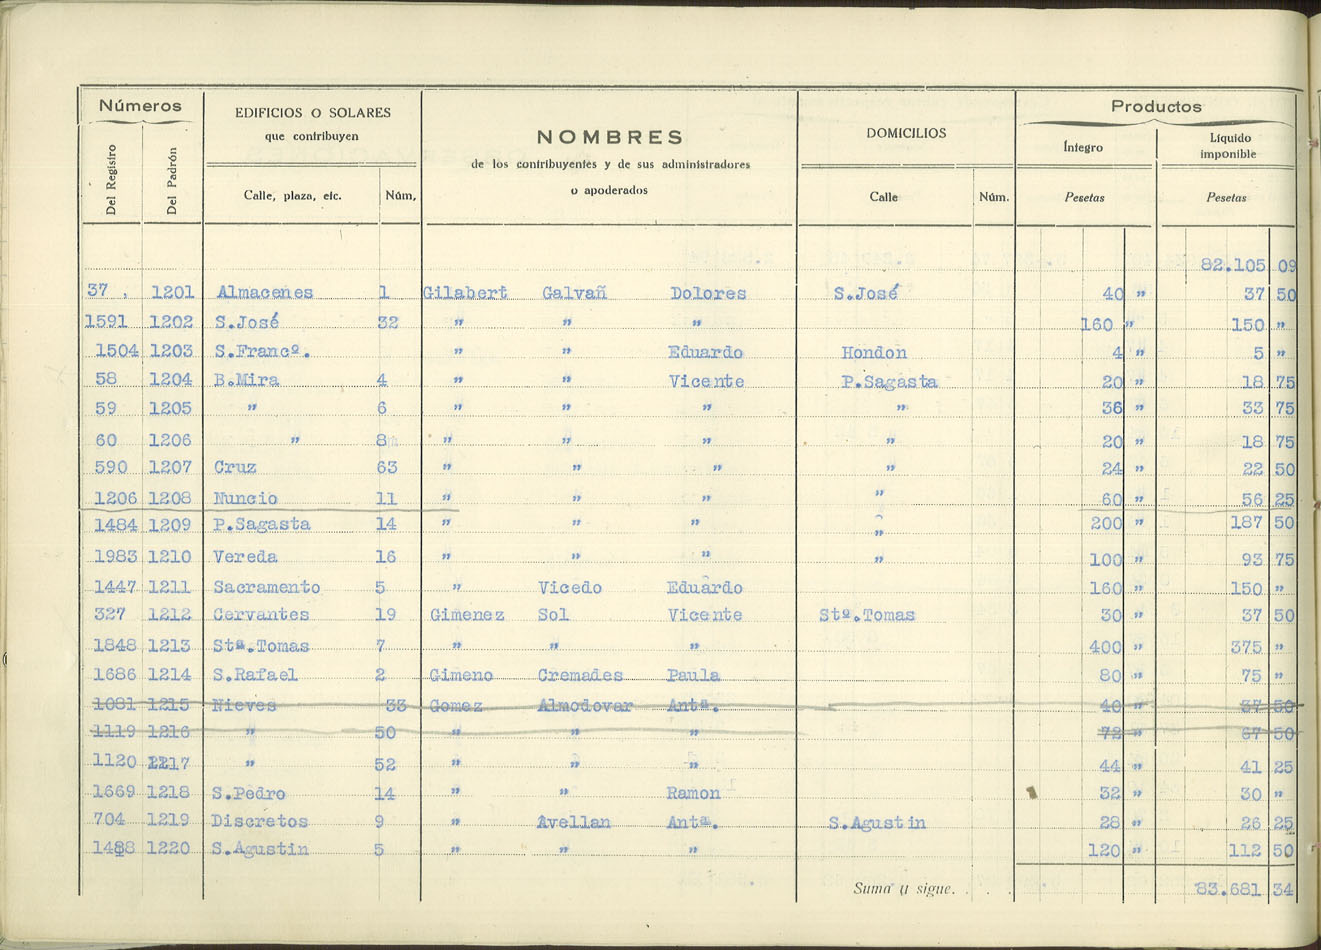 Números EDIFICIOS O SOLARES que contribuyen NOMBRES de los contribuyentes y de sus administradores o apoderados DOMICILIOS Productos
Íntegro Líquido imponible
Del Registro Del Padrón Calle, plaza, etc. Núm, Calle Núm. Pesetas Pesetas
82.105 09
37 . 1201 Almacenes 1 Gilabert Galvañ Dolores S.José 40 " 37 50
1591 1202 S.José 32 " " " 160 " 150 "
1504 1203 S.Francº. " " Eduardo Hondon 4 " 5 "
58 1204 B.Mira 4 " " Vicente P.Sagasta 20 " 18 75
59 1205 " 6 " " " " 36 " 33 75
60 1206 " 8 " " " " 20 " 18 75
590 1207 Cruz 63 " " " " 24 " 22 50
1206 1208 Nuncio 11 " " " " 60 " 56 25
1484 1209 P.Sagasta 14 " " " " 200 " 187 50
1983 1210 Vereda 16 " " " " 100 " 93 75
1447 1211 Sacramento 5 " Vicedo Eduardo 160 " 150 "
327 1212 Cervantes 19 Gimenez Sol Vicente Stª.Tomas 30 " 37 50
1848 1213 Stª.Tomas 7 " " " 400 " 375 "
1686 1214 S.Rafael 2 Gimeno Cremades Paula 80 " 75 "
1081 1215 Nieves 33 Gomez Almodovar Antª. 40 " 37 50
1119 1216 " 50 " " " 72 " 67 50
1120 1217 " 52 " " " 44 " 41 25
1669 1218 S.Pedro 14 " " Ramon 32 " 30 "
704 1219 Discretos 9 " Avellan Antª. S.Agustin 28 " 26 25
1488 1220 S.Agustin 5 " " " 120 " 112 50
Suma y sigue. . . . 83.681 34